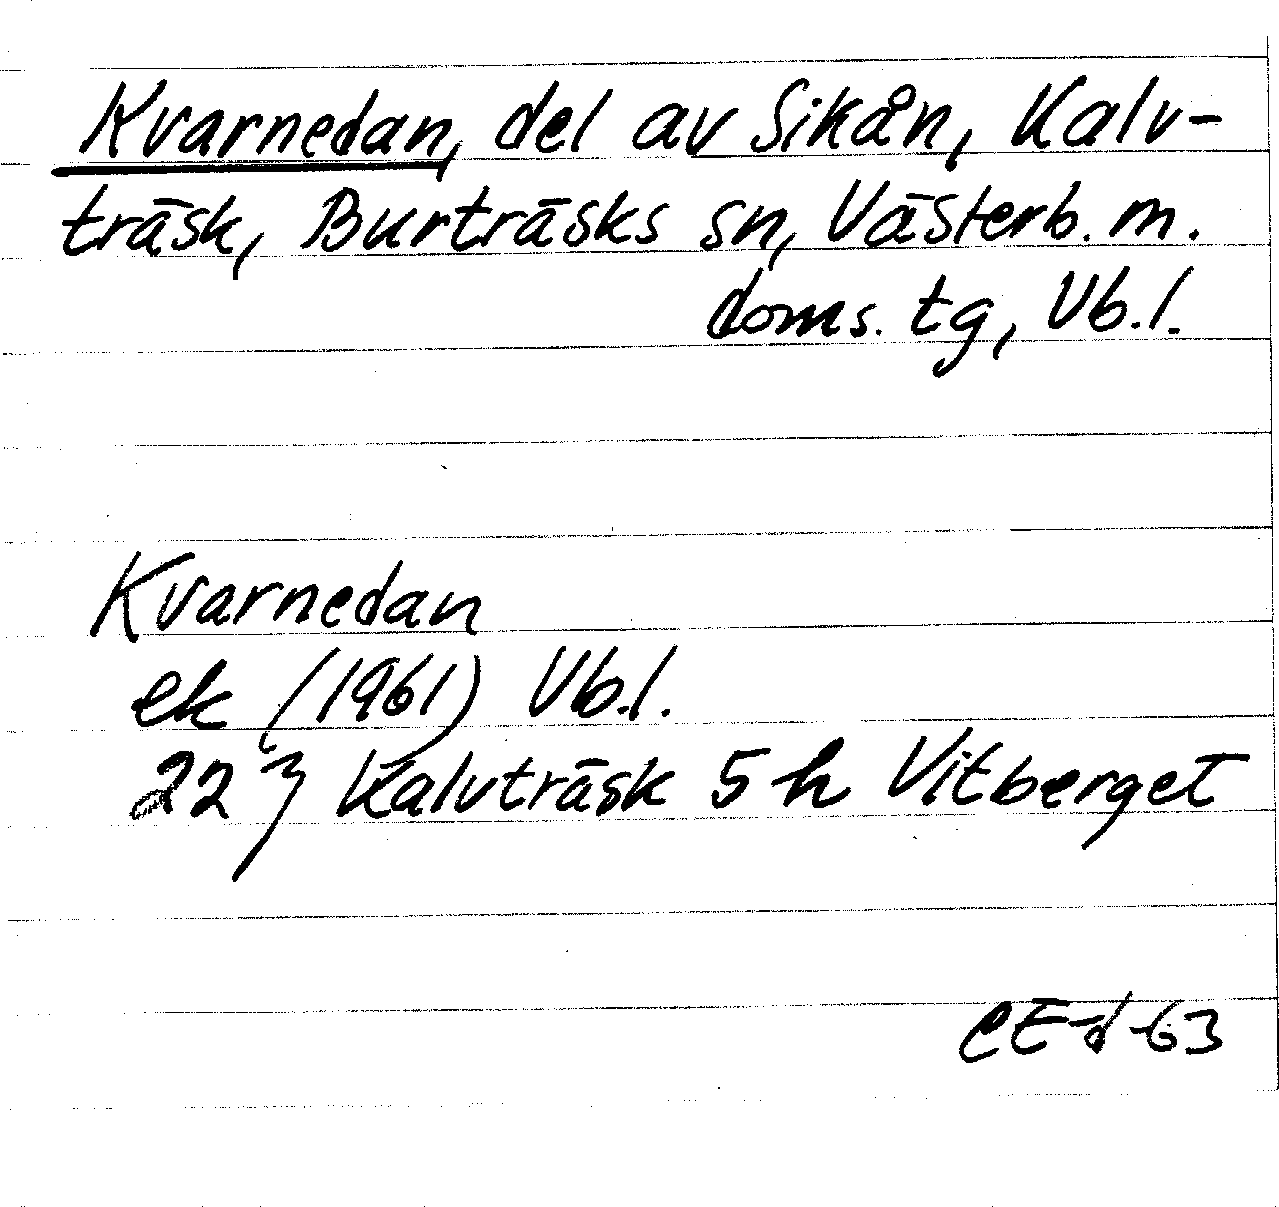 Kvarnedan, del av Sikån, Kalv-
träsk, Burträsks sn, Västerb. m.
doms. tg, Vb.l.
Kvarnedan
ek (1961) Vb.l.
22 J Kalvträsk 5 h Vitberget